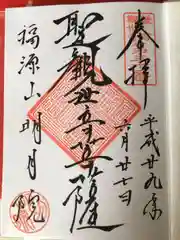 奉拝
平成廿九年
六月廿七日
聖観世音菩薩
福源山明月院